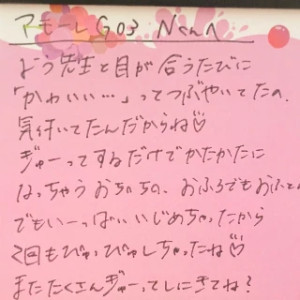 アモーレ G03 Nくんへ
よう先生と目が合うたびに
「かわいい…」ってつぶやいてたの、
気付いてたんだからね♡
ぎゅーってするだけでかたかたに
なっちゃうおちちの、おふろでもおふと
でもいーっぱいいじめちゃったから
2回もぴゅっぴゅしちゃったね♡
またたくさんぎゅーってしにきてね?